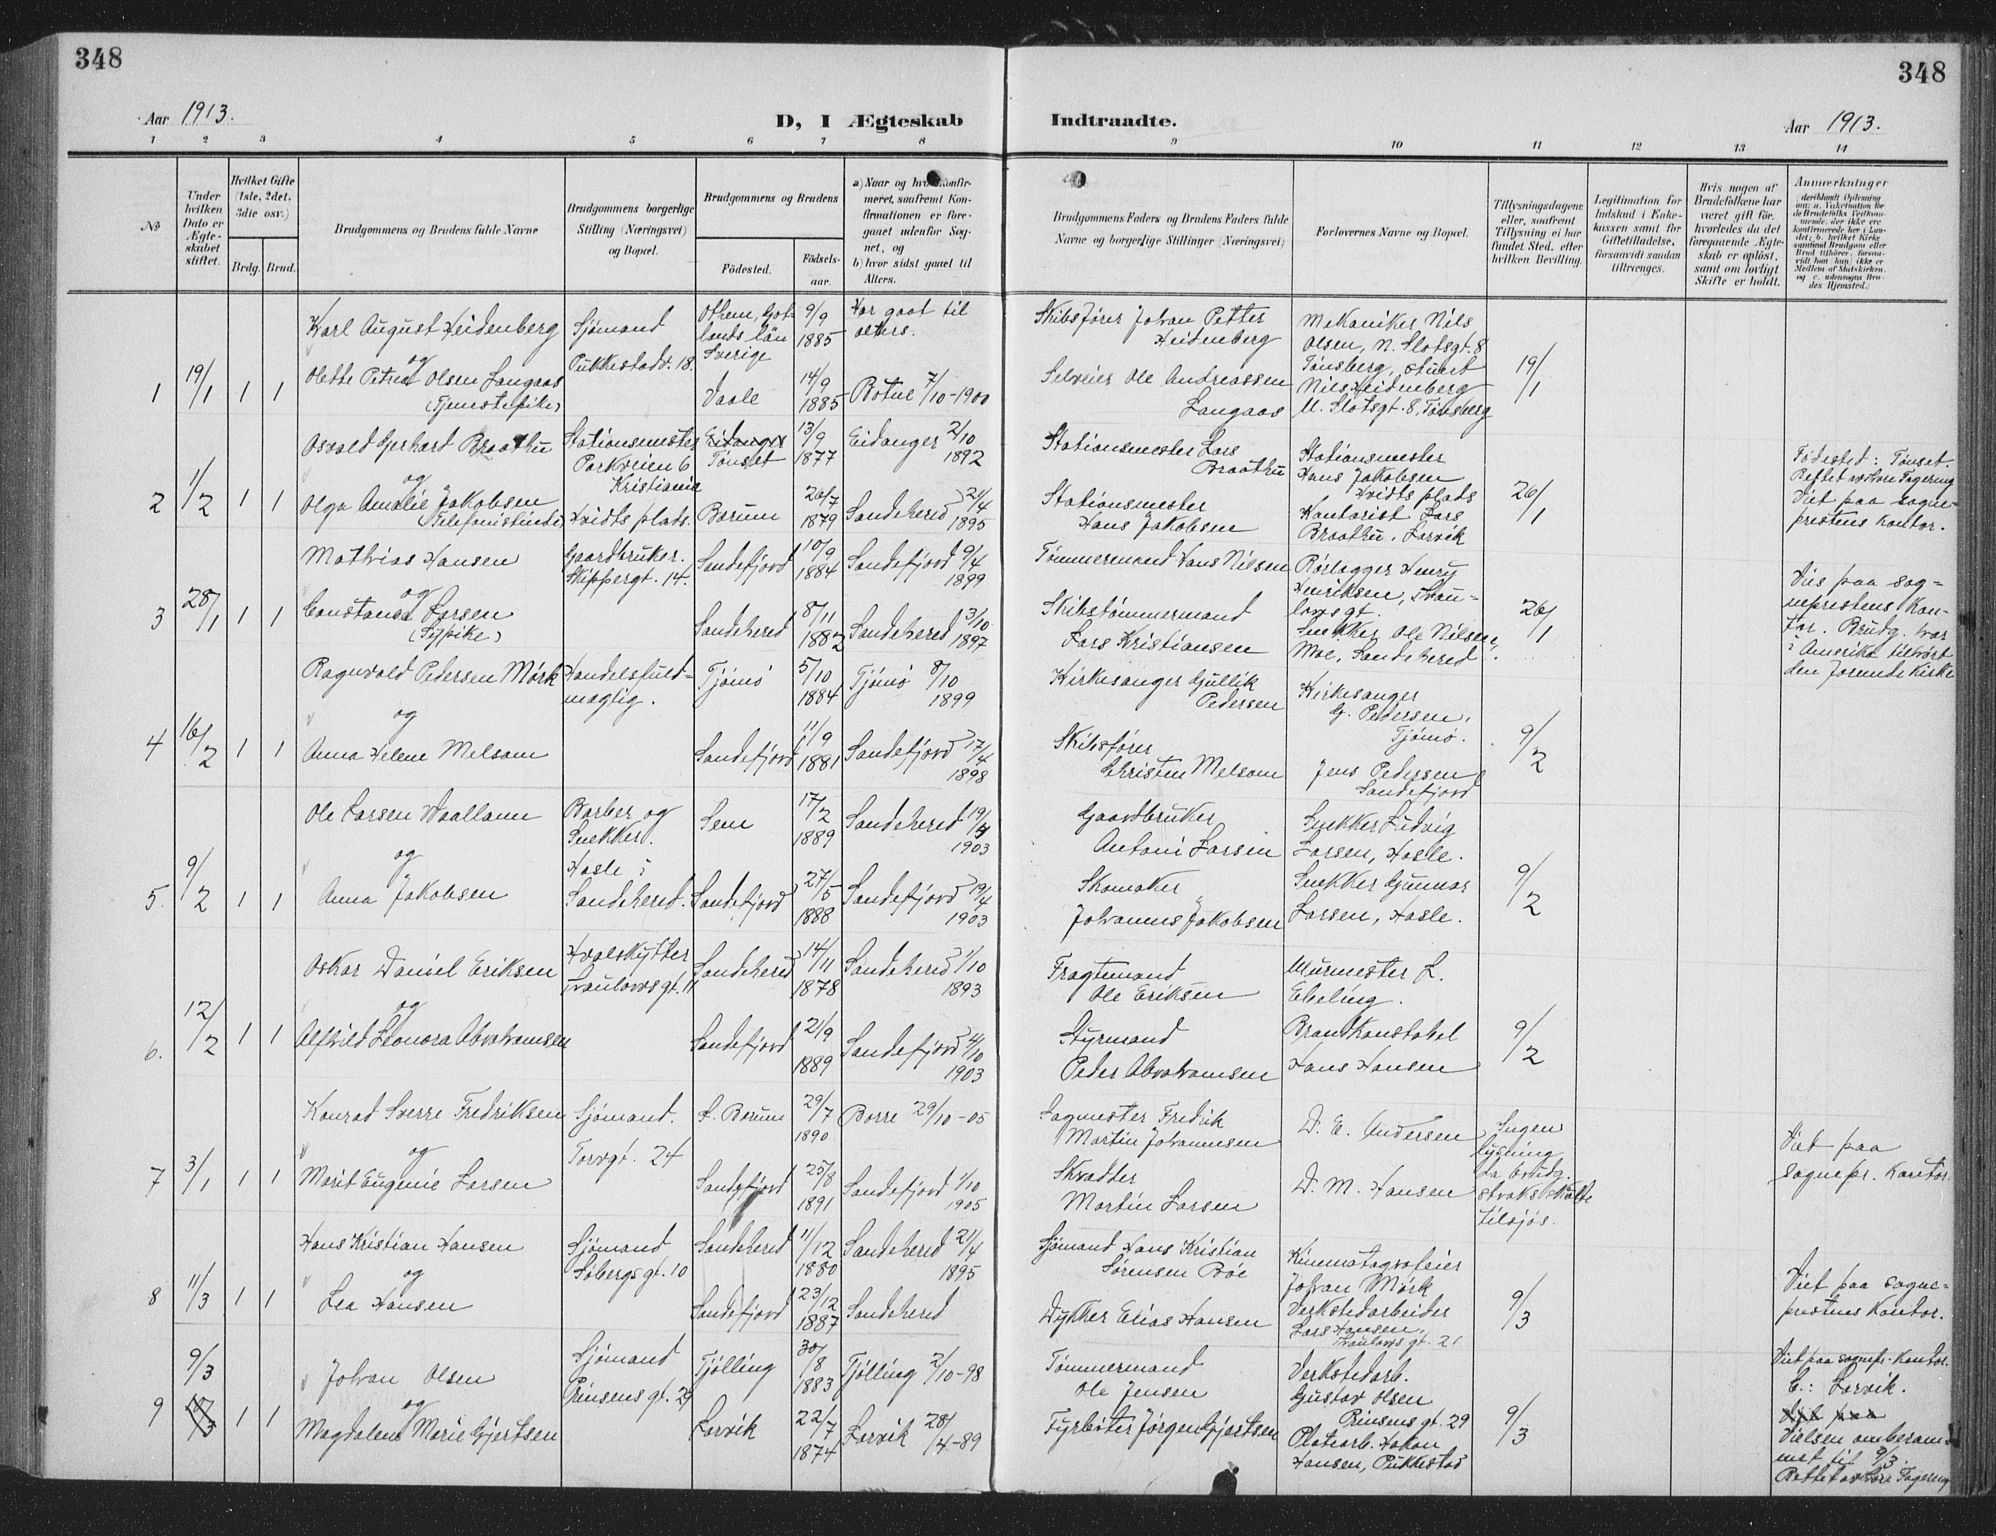 348
348
Aar 1913.
D, I Ægteskab Indtraadte.
Aar 1913.
1 2 3 4 5 6 7 8 9 10 11 12 13 14
No
Under hvilken Dato er Ægteskabet stiftet.
Hvilket Gifte (1ste, 2det, 3die osv.)
Brdg. Brud.
Brudgommens og Brudens fulde Navne
Brudgommens borgerlige Stilling (Næringsvei) og Bopæl.
Brudgommens og Brudens
Födested.
Födselsaar.
a) Naar og hvor konfirmeret, saafremt Konfirmationen er foregaaet udenfor Sognet, og
b) hvor sidst gaaet til Alters.
Brudgommens Faders og Brudens Faders fulde Navne og borgerlige Stillinger (Næringsvei)
Forlovernes Navne og Bopæl.
Tillysningsdagene eller, saafremt Tillysning ei har fundet Sted, efter hvilken Bevilling.
Legitimation for Indskud i Enkekassen samt for Giftetilladelse, forsaavidt saadan tiltrænges.
Hvis nogen af Brudefolkene har været gift før, hvorledes da det foregaaende Ægteskab er oplöst, samt om lovligt Skifte er holdt.
Anmærkninger
1 19/1 1 1
Karl August Heidenberg
og
Olette Petrea Olsen Langaas
(Tjenestepike)
Sjømand
Pukkestadv. 18.
Othem, Gotlands län
Sverige
9/9 1885
Har gaat til alters.
Vaale
14/9 1885
Botne 7/10-1900
Skibsfører Johan Petter Heidenberg
Selveier Ole Andreassen Langaas
Mekaniker Nils Olsen, N. Slotsgt. 8
Tønsberg, Stuert
Nils Heidenberg
N. Slotsgt. 8, Tønsberg
19/1
2 1/2 1 1
Osvald Gerhart Braathu
og
Olga Amalie Jakobsen
(Telefonistinde)
Stationsmester
Parkveien 6
Kristiania
Hvidts plads.
Eidanger
Tønset
13/9 1877
Eidanger 2/10 1892
Barum
26/7 1879
Sandeherred 21/4 1895
Stationsmester Lars Braathu
Stationsmester
Hans Jakobsen
Stationsmester
Hans Jakobsen
Hvidts plads
Kontorist Lars
Braathu, Larvik
26/1
Fødested: Tønset.
Rettet
Viet paa sogneprestens kontor.
3 28/1 1 1
Mathias Hansen
og
Constance Larsen
(Sypike)
Gaardbruker.
Skippergt. 14.
Sandefjord
10/9 1884
Sandefjord 9/4 1899
Sandeherred
8/11 1882
Sandeherred 3/10 1897
Tømmermand Hans Nilsen
Skibstømmermand
Lars Kristiansen
Rørlægger Henry
Henriksen, Traulovsgt.
Snekker Ole Nilsen
Moe, Sandeherred
26/1
Vies paa sogneprestens kontor. Brudg. har i Amerika tilhørt den forende kirke
4 16/2 1 1
Ragnvald Pedersen Mørk
og
Anna Helene Melsom
Handelsfuldmægtig.
Tjømø
5/10 1884
Tjømø 8/10 1899
Sandefjord
11/9 1881
Sandefjord 17/4 1898
Kirkesanger Gullik Pedersen
Skibsfører
Christen Melsom
Kirkesanger
G. Pedersen,
Tjømø.
Jens Pedersen
Sandefjord
9/2
5. 9/2 1 1
Ole Larsen Waallann
og
Anna Jakobsen
Barber og
Snekker.
Hasle i
Sandeherred.
Sem
17/2 1889
Sandeherred 19/4 1903
Sandefjord
27/5 1888
Sandefjord 19/4 1903
Gaardbruker
Antoni Larsen
Skomaker
Johannes Jakobsen
Snekker Ludvig
Larsen, Hasle.
Snekker Gunnar
Larsen, Hasle.
9/2
6. 12/2 1 1
Oskar Daniel Eriksen
og
Alfhild Leonora Abrahamsen
Hvalskytter
Traulovsgt. 11
Sandeherred
14/11 1878
Sandeherred 1/10 1893
Sandefjord
21/9 1889
Sandefjord 4/10 1903
Fragtemand
Ole Eriksen
Styrmand
Peder Abrahamsen
Murmester L.
Ebeling.
Brandkonstabel
Hans Hansen
9/2
7 3/1 1 1
Konrad Sverre Fredriksen
og
Marit Eugenie Larsen
Sjømand.
Torvgt. 24
S. Barum
29/7 1890
Borre 29/10-05
Sandefjord
25/8 1891
Sandefjord 1/10 1905
Sagmester Fredrik
Martin Johannesen
Skrædder
Martin Larsen
D. E. Andersen
D. M. Hansen
Ingen lysning da brudg. straks måtte tilsjøs.
Viet paa
sognepr. kontor.
8 11/3 1 1
Hans Kristian Hansen
og
Lea Hansen
Sjømand
Søbergsgt. 10
Sandeherred
11/12 1880
Sandeherred 21/4 1895
Sandefjord
23/12 1887
Sandeherred
Sjømand Hans Kristian
Sørensen Bøe
Dykker Elias Hansen
Kinematografeier
Johan Mørk
Verkstedarbeider
Lars Hansen,
Traulovsgt. 21
9/3
Viet paa sogneprestens kontor.
9 9/3 1 1
Johan Olsen
og
Magdalene Marie Gjertsen
Sjømand
Prinsensgt. 29
Tjølling
30/8 1883
Tjølling 2/10-98
Larvik
22/7 1874
Larvik 28/4-89
Tømmermand
Ole Jensen
Fyrbøter Jørgen Gjertsen
Verkstedarb.
Gustav Olsen
Prinsensgt. 29
Platearb. Hakon
Hansen, Pukkestad
9/3
Viet paa sognepr. kontor.
C.: Larvik.
Viet paa
Vielsen omberammet til 9/3.
Rettet